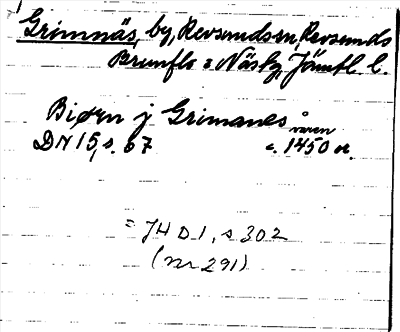 Grimnäs, by, Revsunds sn, Revsunds
Brunflo o Näs tg, Jämtl. l.
Biørn j Grimanes
DN 15, s. 67 c. 1450 or.
= JHD 1, s 302
(nr 291)